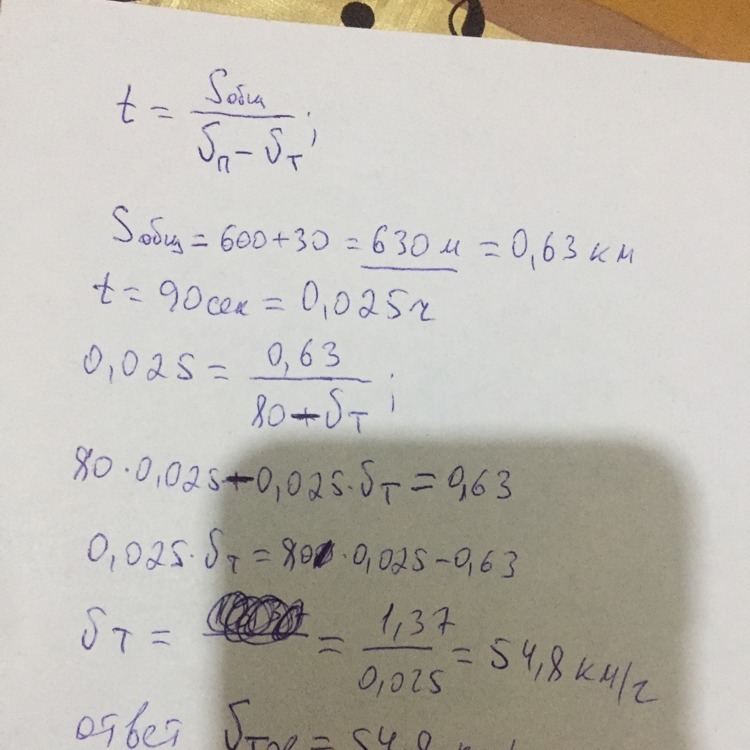 t = Sобщ / (Sп − Sт);
Sобщ = 600+30 = 630 м = 0,63 км
t = 90сек = 0,025ч
0,025 = 0,63 / (80 − Sт);
80·0,025 − 0,025·Sт = 0,63
0,025·Sт = 80·0,025 − 0,63
Sт = = 1,37 / 0,025 = 54,8 км/ч
ответ = 54,8